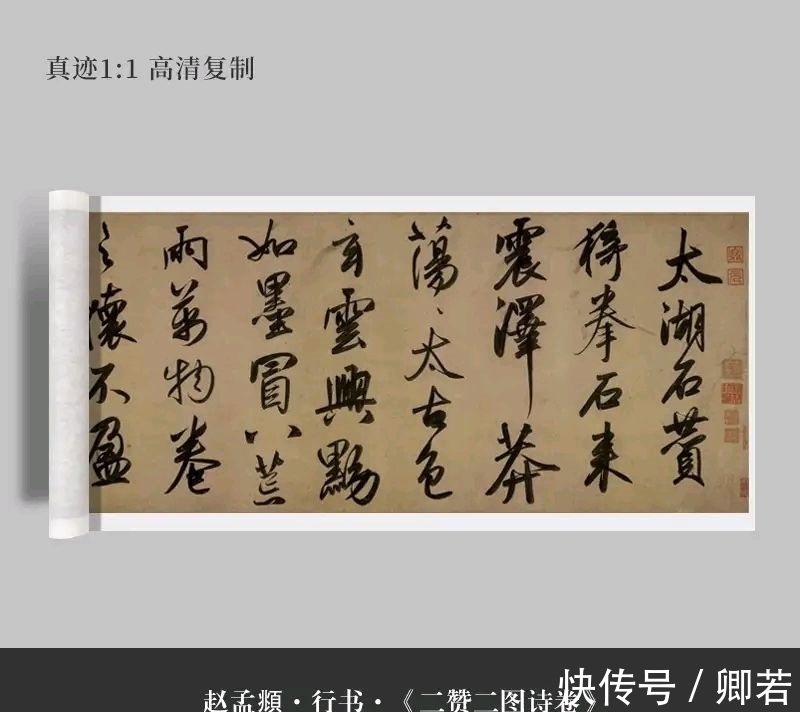 真迹1:1 高清复制
太湖石赞
猗拳石来
震澤莽
蕩、太古色
玄雲興黝
如墨冒八荒
雨萬物卷
之懷不盈
赵孟頫·行书·《二赞二图诗卷》
快传号 / 卿若